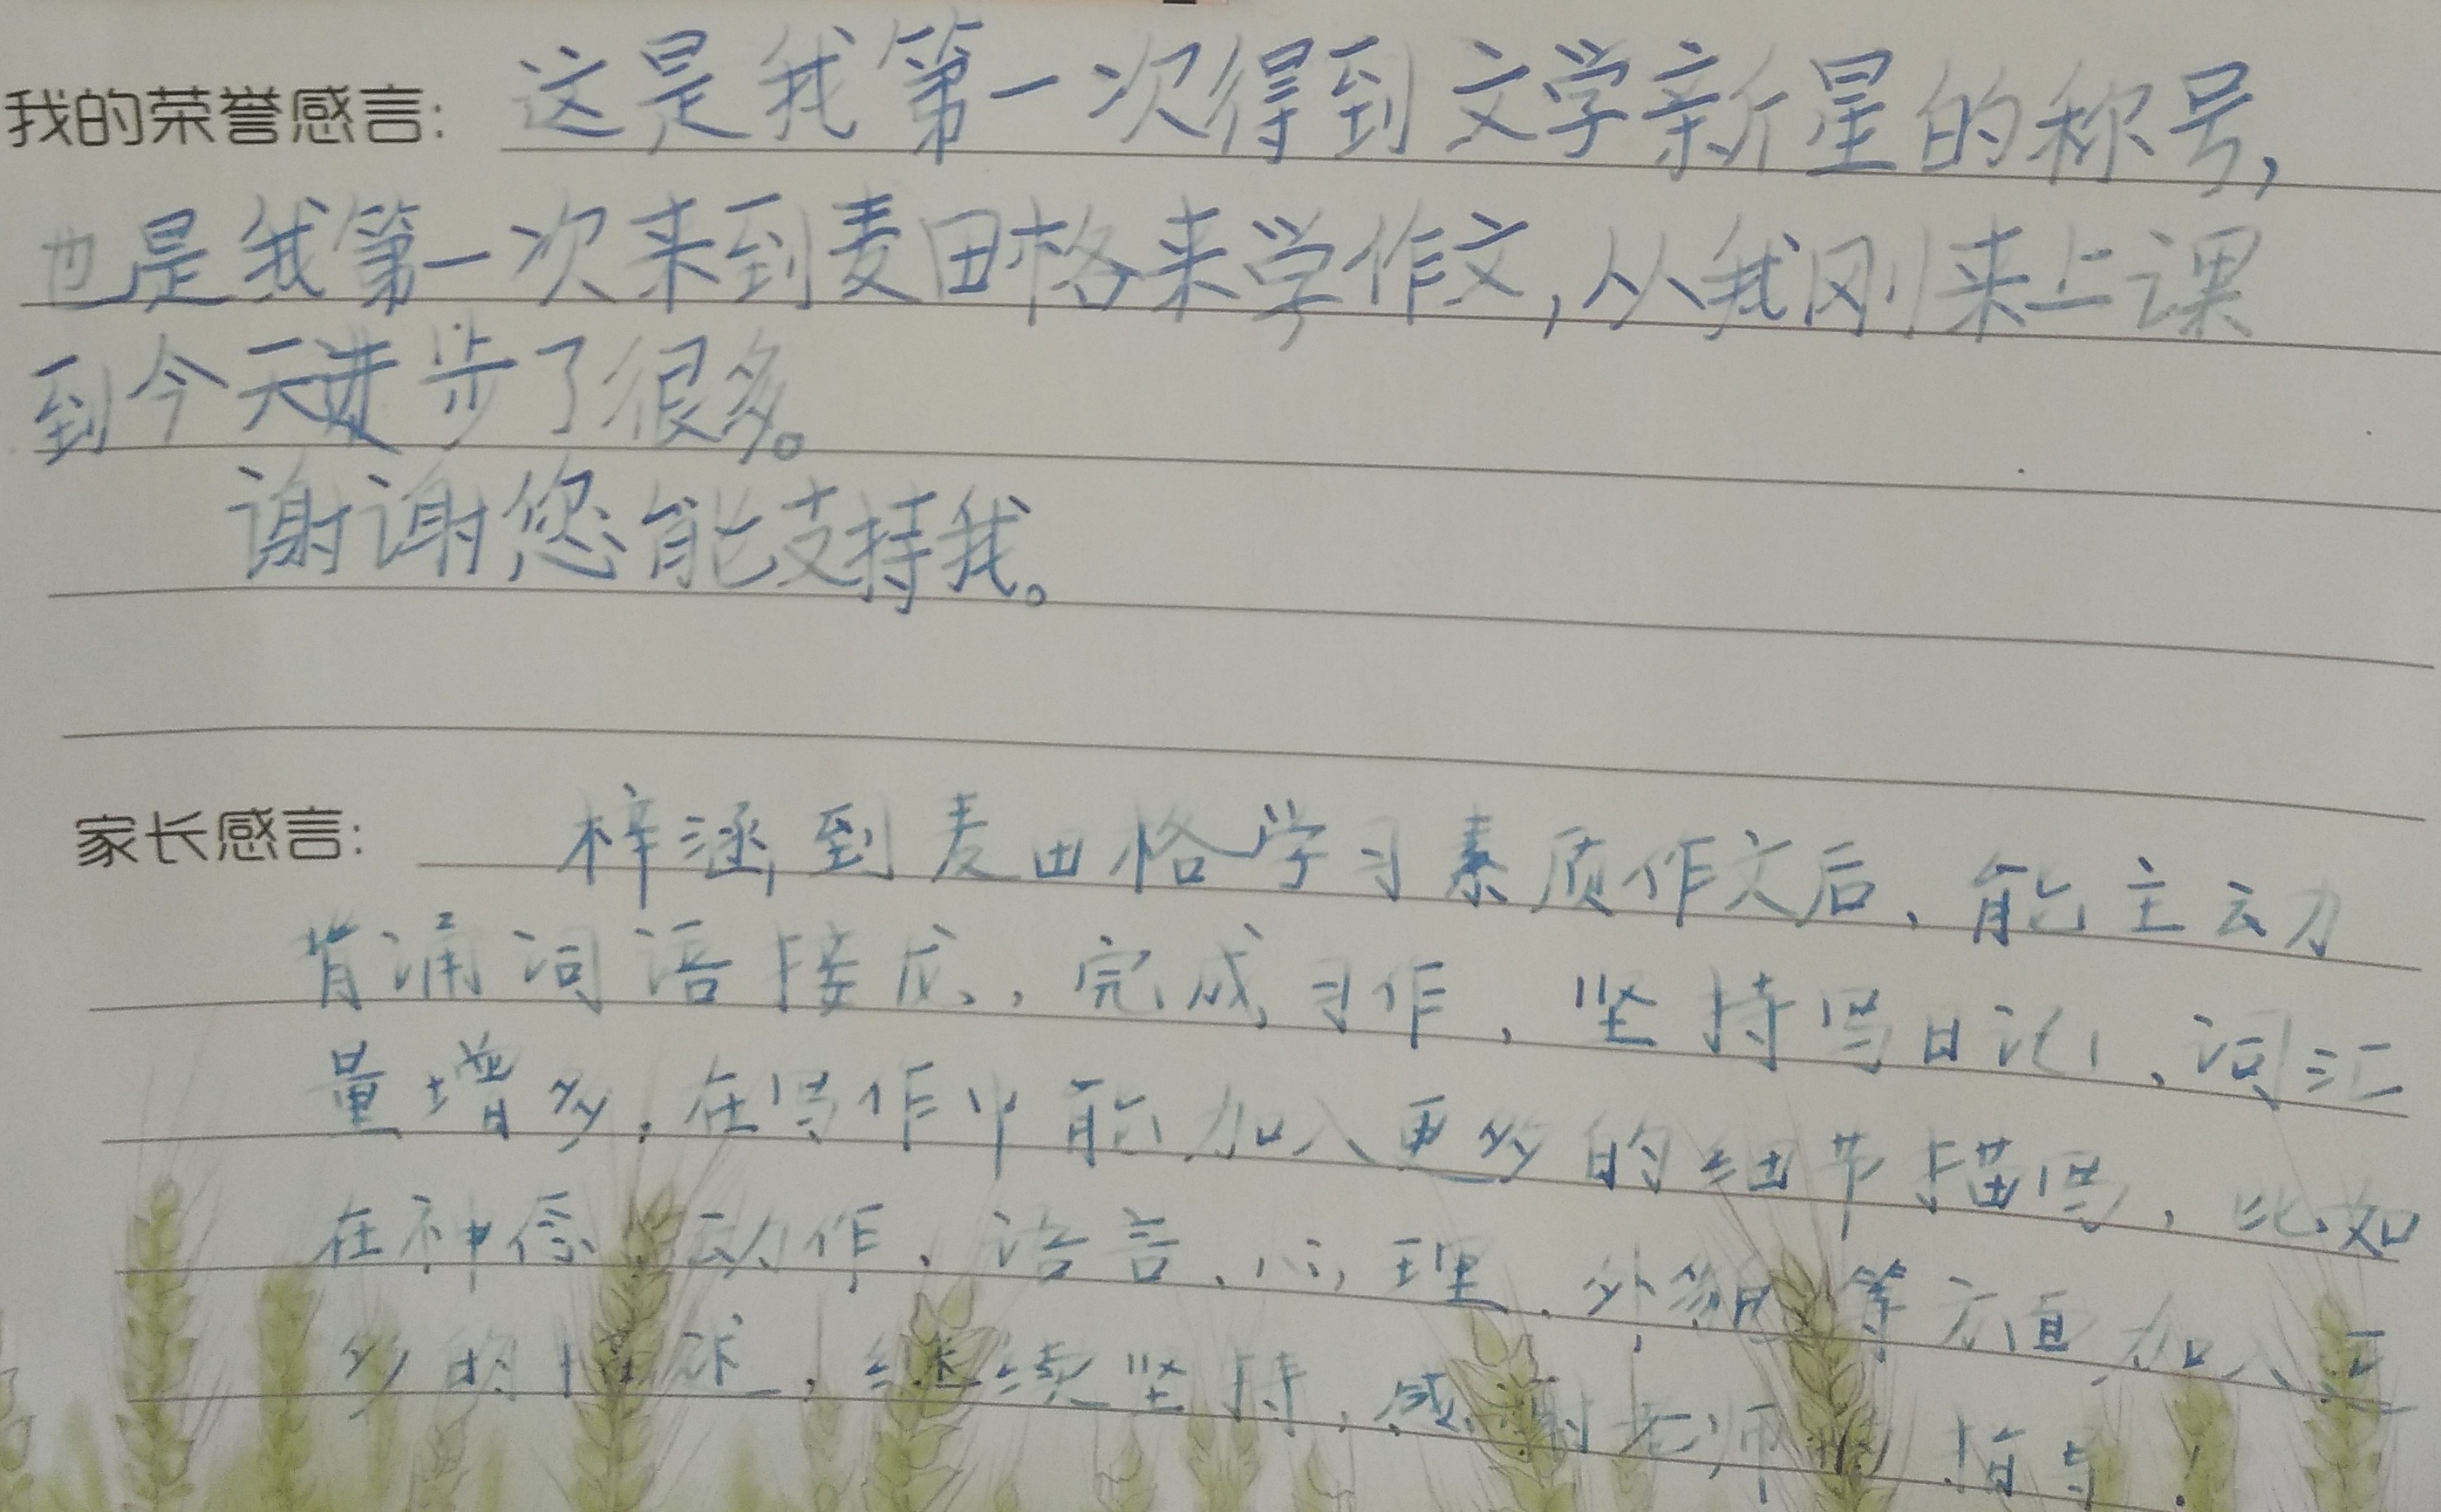 我的荣誉感言: 这是我第一次得到文学新星的称号,
也是我第一次来到麦田格来学作文,从我刚来上课
到今天进步了很多。
谢谢您能支持我。
家长感言: 梓涵到麦田格学习素质作文后、能主动
背诵词语接龙、完成习作,坚持写日记、词汇
量增多.在写作中能加入更多的细节描写,比如
在神情、动作、语言、心理、外貌等方面加入更
多的描述,继续坚持,感谢老师的指导!